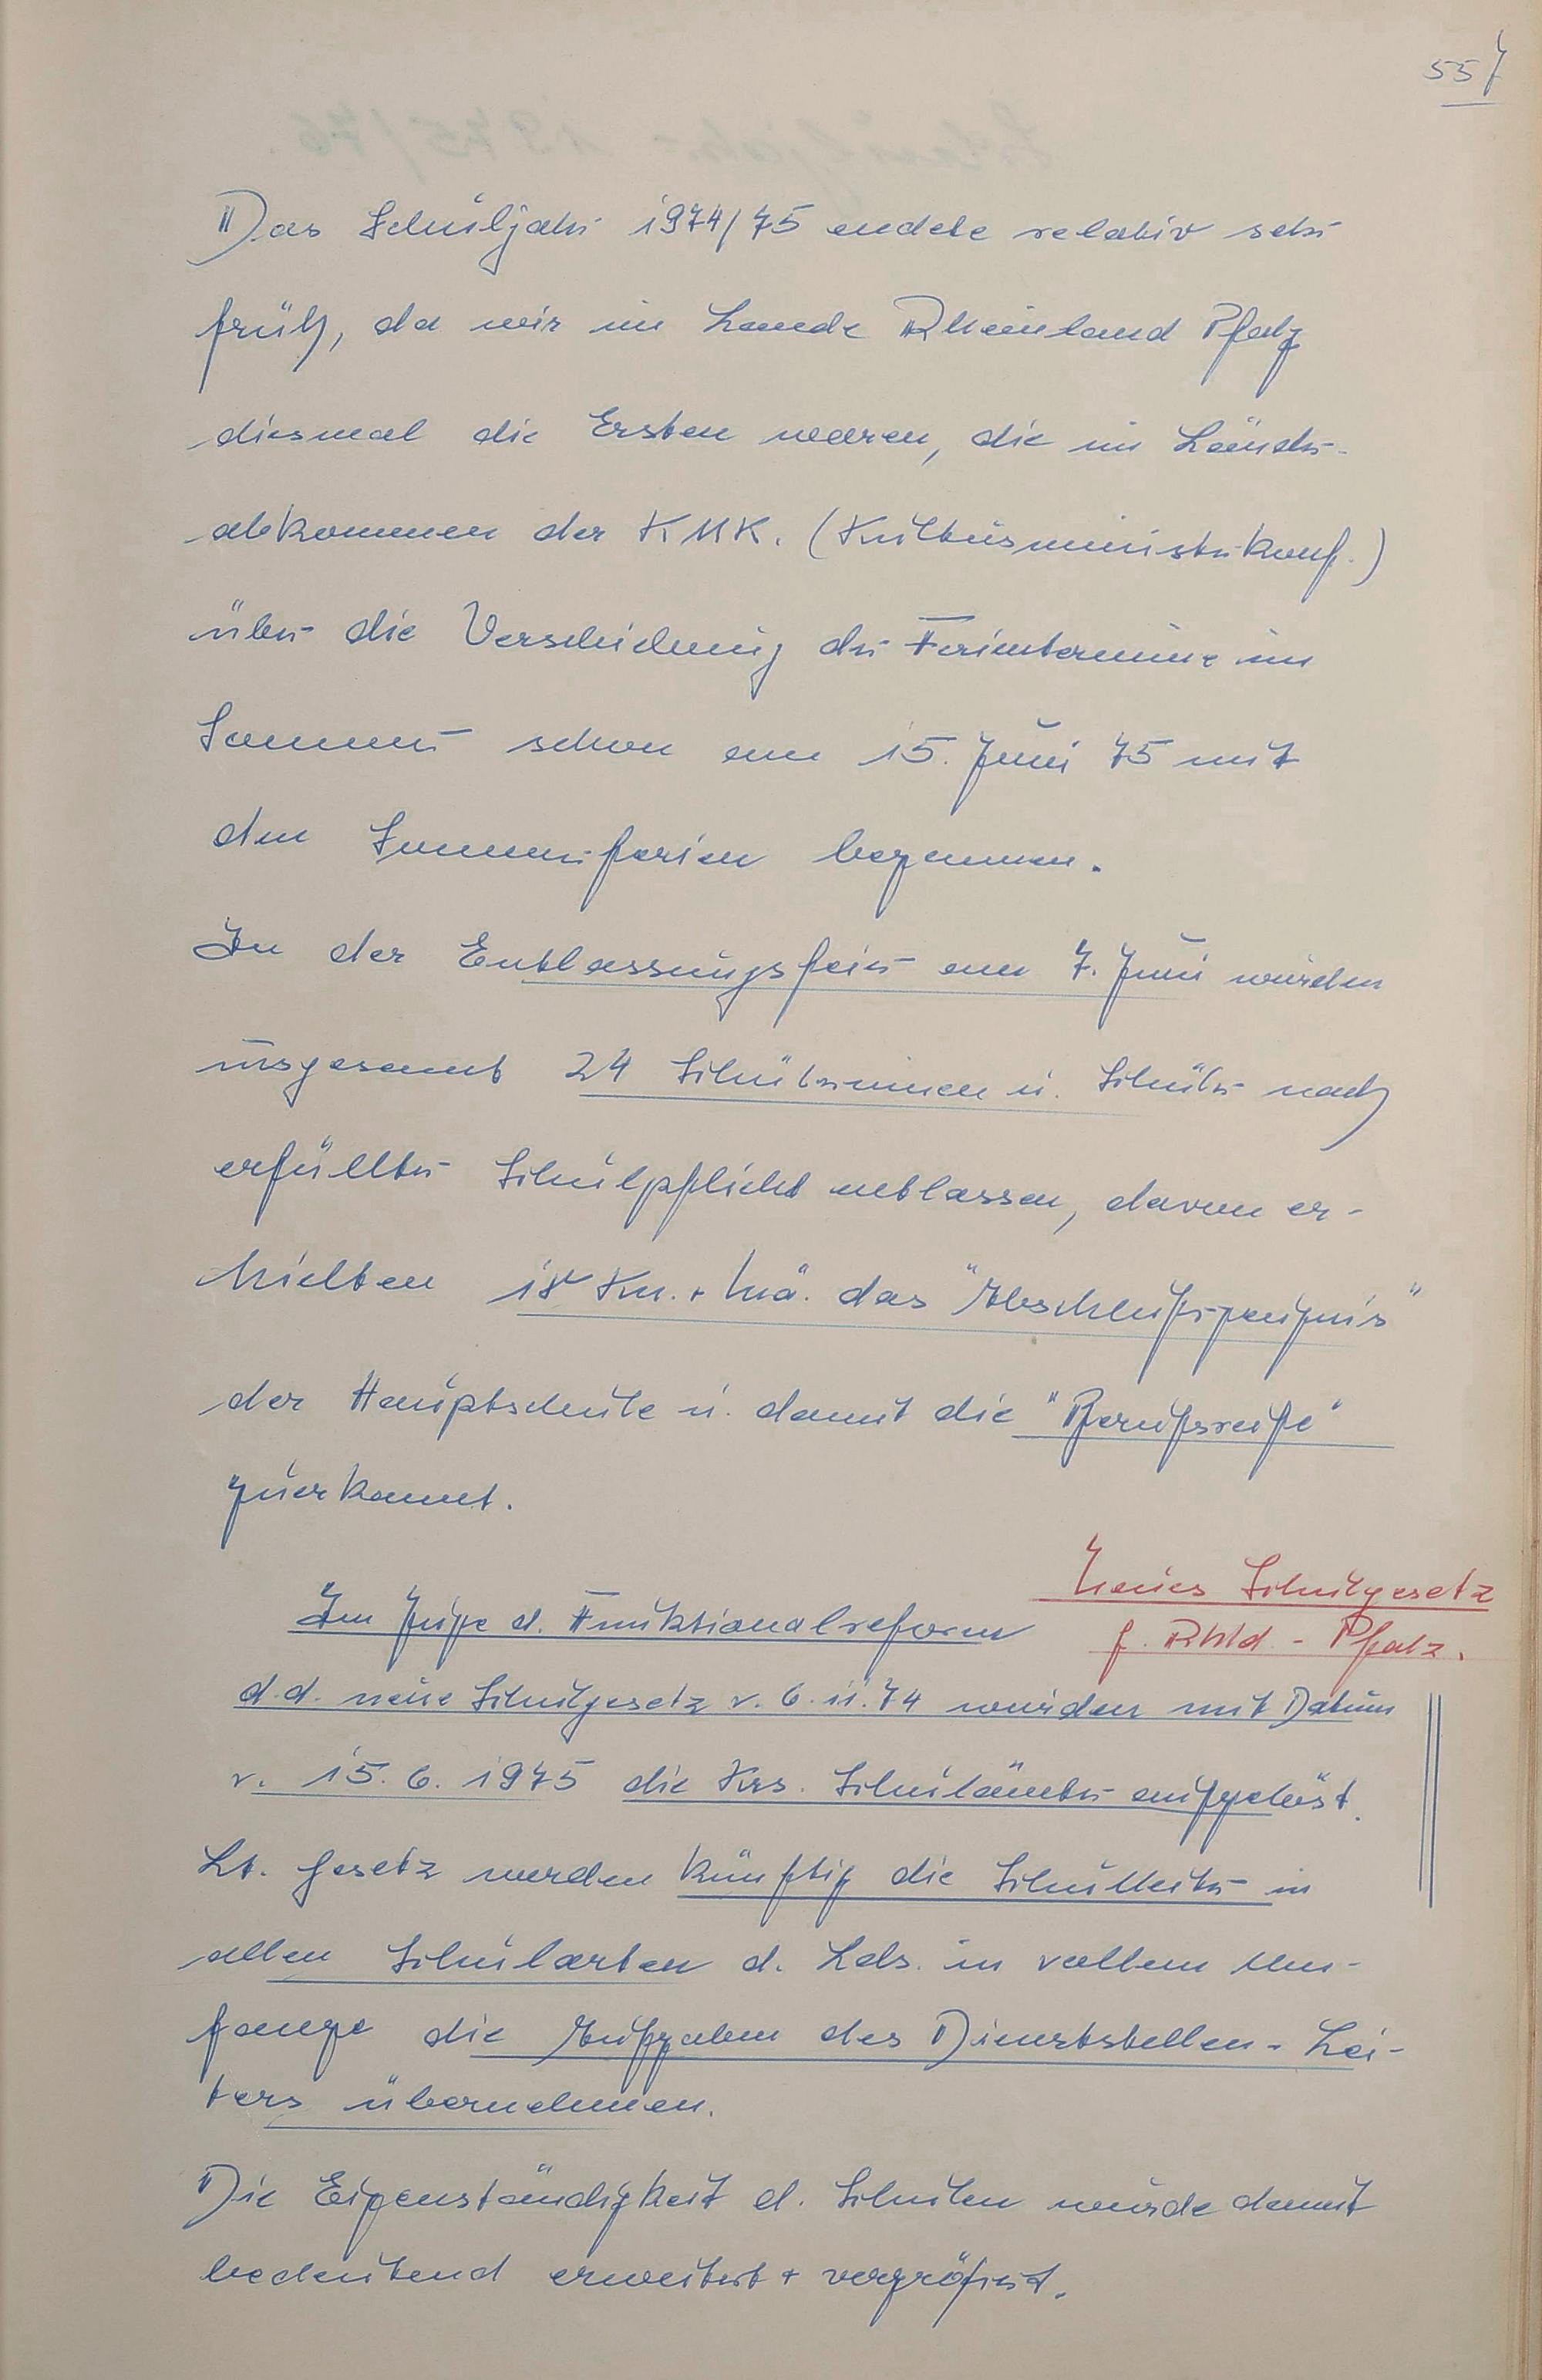 557
Das Schuljahr 1974/75 endete relativ sehr
früh, da wir im Lande Rheinland Pfalz
diesmal die Ersten waren, die im Länder-
abkommen der KMK. (Kultusministerkonf.)
über die Verschiebung der Ferientermine im
Sommer schon am 15. Juni 75 mit
den Sommerferien begannen.
In der Entlassungsfeier am 7. Juni wurden
insgesamt 24 Schülerinnen u. Schüler nach
erfüllter Schulpflicht entlassen, davon er-
hielten 18 Kn. + Mä. das "Abschlußzeugnis"
der Hauptschule u. damit die "Berufsreife"
zuerkannt.
Neues Schulgesetz
f. Rhld - Pfalz.
Im Zuge d. Funktionalreform
d.d. neue Schulgesetz v. 6.11.74 wurden mit Datum
v. 15.6.1975 die Krs. Schulämter aufgelöst.
Lt. Gesetz werden künftig die Schulleiter in
allen Schularten d. Lds. in vollem Um-
fange die Aufgaben des Dienststellen-Lei-
ters übernehmen.
Die Eigenständigkeit d. Schulen wurde damit
bedeutend erweitert + vergrößert.